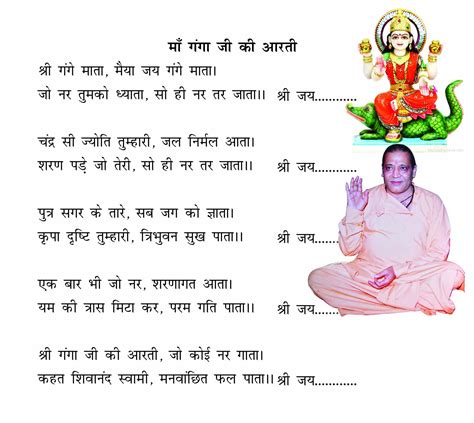 माँ गंगा जी की आरती
श्री गंगे माता, मैया जय गंगे माता।
जो नर तुमको ध्याता, सो ही नर तर जाता।। श्री जय............
चंद्र सी ज्योति तुम्हारी, जल निर्मल आता।
शरण पड़े जो तेरी, सो ही नर तर जाता।। श्री जय............
पुत्र सगर के तारे, सब जग को ज्ञाता।
कृपा दृष्टि तुम्हारी, त्रिभुवन सुख पाता।। श्री जय............
एक बार भी जो नर, शरणागत आता।
यम की त्रास मिटा कर, परम गति पाता।। श्री जय............
श्री गंगा जी की आरती, जो कोई नर गाता।
कहत शिवानंद स्वामी, मनवांछित फल पाता।। श्री जय............